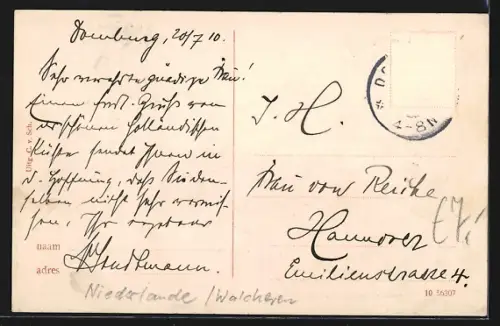 Domburg, 20/7 10.
Sehr verehrte gnädige Frau!
Einen frdl. Gruß von
der schönen Holländischen
Küste sendet Ihnen in
d. Hoffnung, daß Sie den-
selben nicht sehr vermis-
sen, Ihr ergebener
naam
adres
Uitg. C. v. Sch.
I. H.
Frau von Reiche
Hannover
Emilienstrasse 4.
Niederlande / Walcheren
10 56307